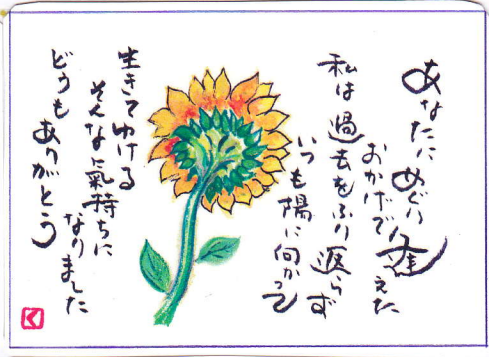 あなたにめぐり逢えた
おかげで
私は過去をふり返らず
いつも陽に向かって
生きてゆける
そんな氣持ちに
なりました
どうもありがとう
K